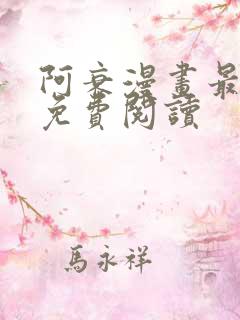 阿衰漫畫最
免費閱讀
馬永祥